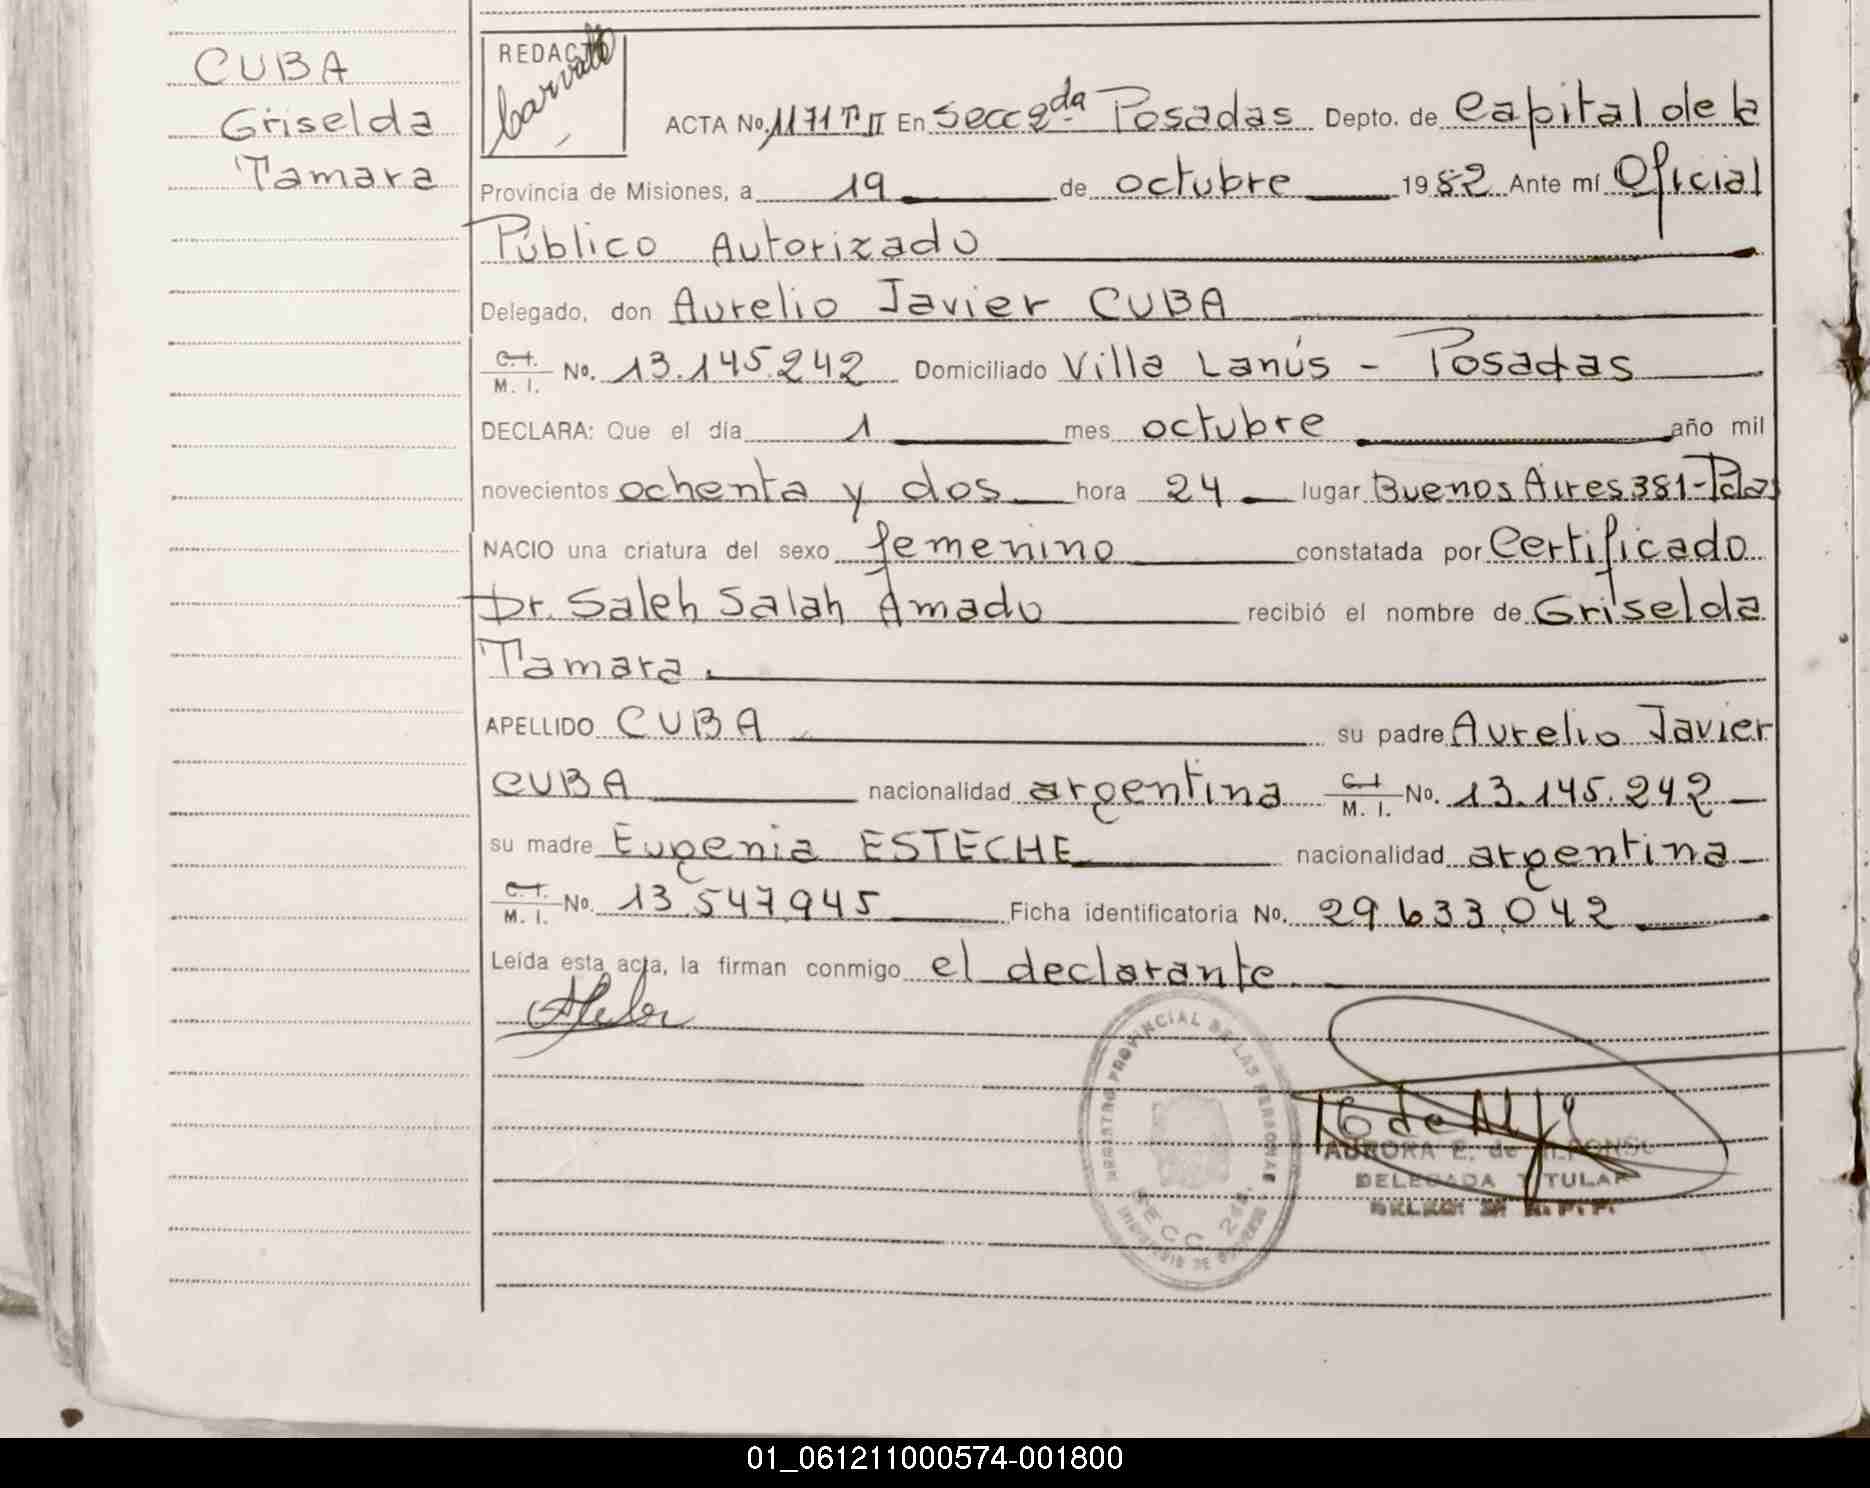 CUBA
Griselda
Tamara
REDACTO
ACTA No. 1171 T° II En Secc 2da Posadas Depto. de Capital de la
Provincia de Misiones, a 19 de octubre 1982 Ante mí Oficial
Público Autorizado
Delegado, don Aurelio Javier CUBA
C.I. M. I. No. 13.145.242 Domiciliado Villa Lanús - Posadas
DECLARA: Que el día 1 mes octubre año mil
novecientos ochenta y dos hora 24 lugar Buenos Aires 381-Pdas
NACIO una criatura del sexo femenino constatada por Certificado
Dr. Saleh Salah Amado recibió el nombre de Griselda
Tamara.
APELLIDO CUBA su padre Aurelio Javier
CUBA nacionalidad argentina C.I. M. I. No. 13.145.242
su madre Eugenia ESTECHE nacionalidad argentina
C.I. M. I. No. 13.547.945 Ficha identificatoria No. 29.633.042
Leída esta acta, la firman conmigo el declarante.
REGISTRO PROVINCIAL DE LAS PERSONAS
SECC. 2da.
AURORA E. de ALFONSO
DELEGADA TITULAR
01_061211000574-001800